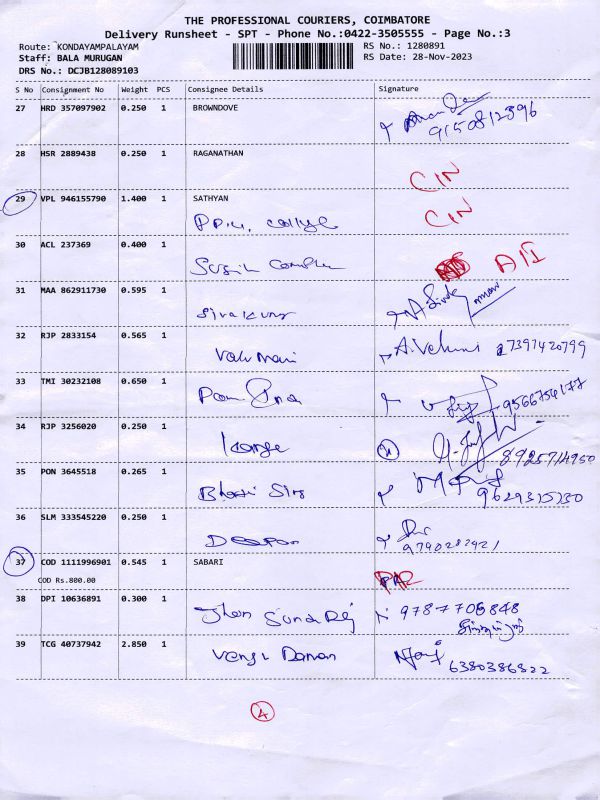 THE PROFESSIONAL COURIERS, COIMBATORE
Delivery Runsheet - SPT - Phone No.:0422-3505555 - Page No.:3
Route: KONDAYAMPALAYAM RS No.: 1280891
Staff: BALA MURUGAN RS Date: 28-Nov-2023
DRS No.: DCJB128089103
S No Consignment No Weight PCS Consignee Details Signature
27 HRD 357097902 0.250 1 BROWNDOVE
9150812396
28 HSR 2889438 0.250 1 RAGANATHAN
CIN
29 VPL 946155790 1.400 1 SATHYAN
CIN
30 ACL 237369 0.400 1
31 MAA 862911730 0.595 1
Sivakumar
32 RJP 2833154 0.565 1
A. Velumi 7397420799
33 TMI 30232108 0.650 1
9566754177
34 RJP 3256020 0.250 1
8925714950
35 PON 3645518 0.265 1
9629315230
36 SLM 333545220 0.250 1
Deepan
9790282921
37 COD 1111996901 0.545 1 SABARI
COD Rs.800.00
38 DPI 10636891 0.300 1
Jhon Sunda Rej 9787706848
39 TCG 40737942 2.850 1
Vengi Danan 6380386822
4